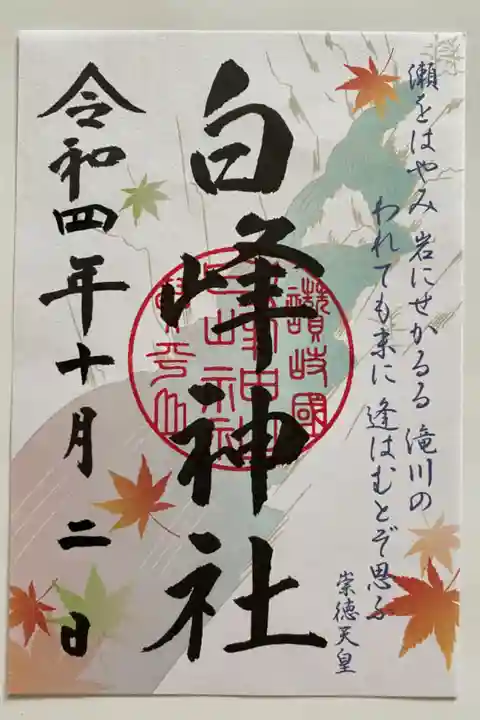 瀬をはやみ 岩にせかるる 滝川の
われても末に 逢はむとぞ思ふ
崇徳天皇
白峰神社
讃岐國
令和四年十月二日